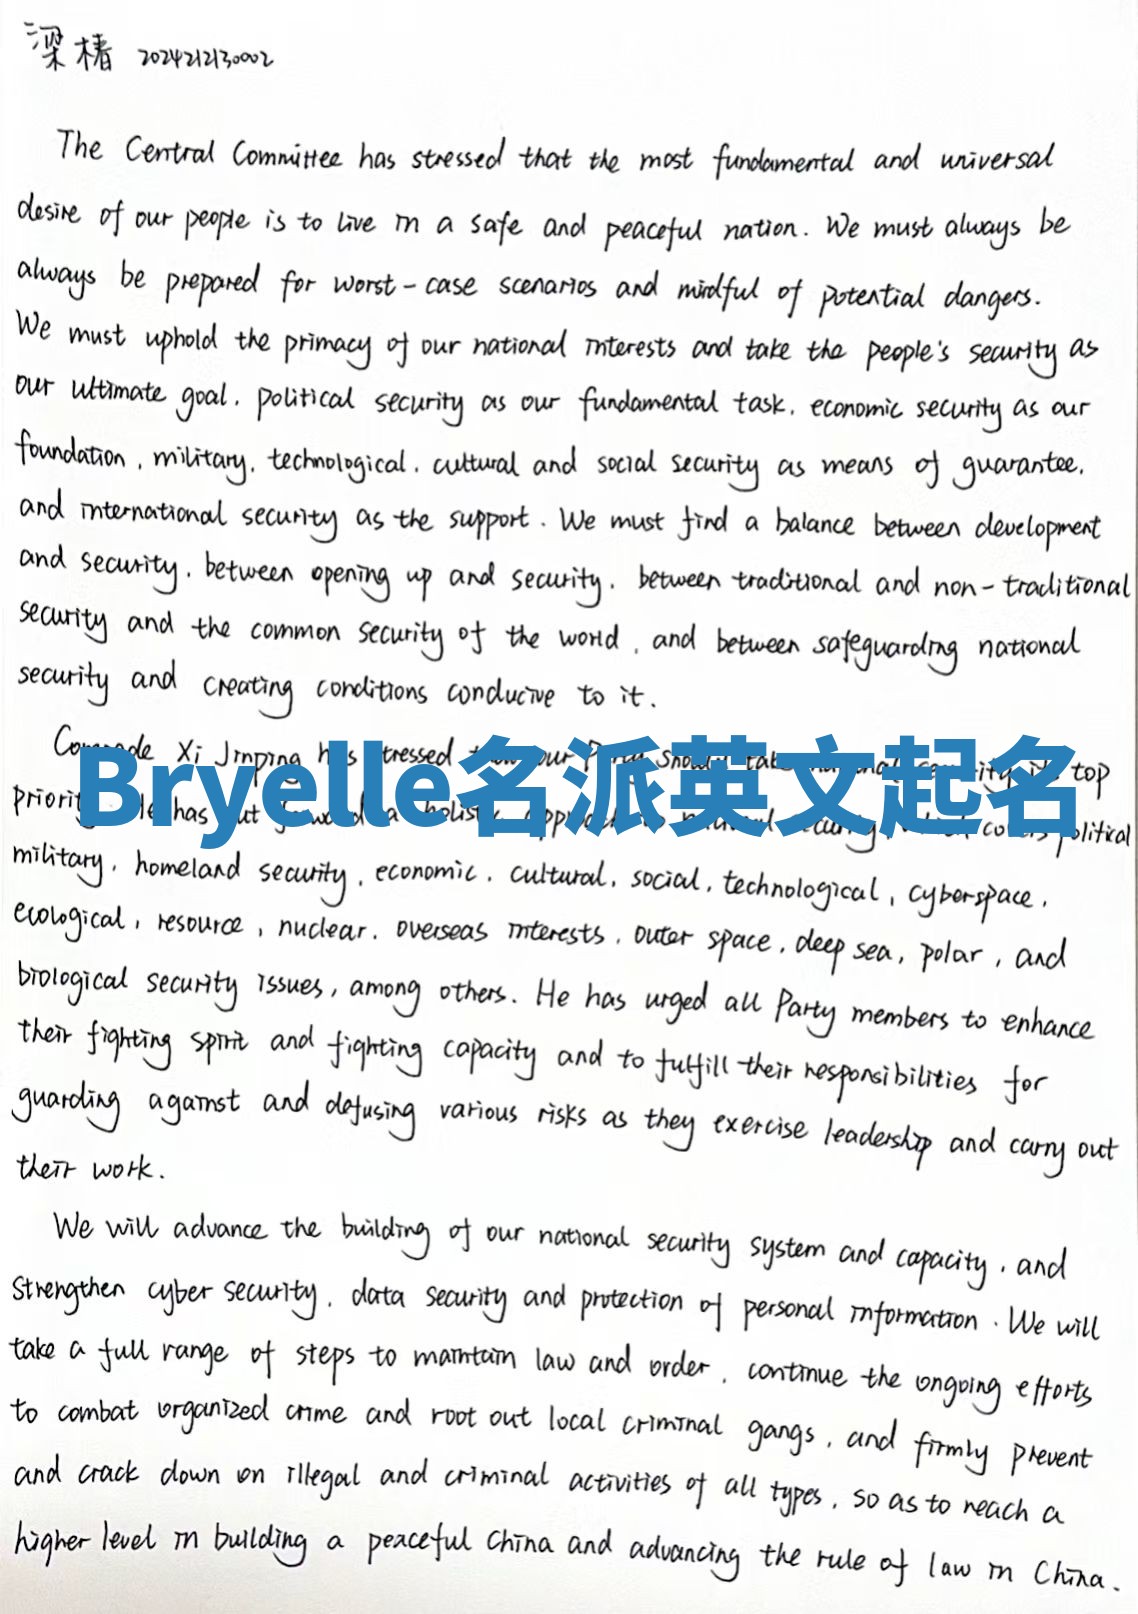 梁椿 2024212130002
The Central Committee has stressed that the most fundamental and universal
desire of our people is to live in a safe and peaceful nation. We must always be
always be prepared for worst-case scenarios and mindful of potential dangers.
We must uphold the primacy of our national interests and take the people's security as
our ultimate goal, political security as our fundamental task, economic security as our
foundation, military, technological, cultural and social security as means of guarantee,
and international security as the support. We must find a balance between development
and security, between opening up and security, between traditional and non-traditional
security and the common security of the world, and between safeguarding national
security and creating conditions conducive to it.
Comrade Xi Jinping has stressed our top
Bryelle名派英文起名
has a political
military, homeland security, economic, cultural, social, technological, cyberspace,
ecological, resource, nuclear, overseas interests, outer space, deep sea, polar, and
biological security issues, among others. He has urged all Party members to enhance
their fighting spirit and fighting capacity and to fulfill their responsibilities for
guarding against and defusing various risks as they exercise leadership and carry out
their work.
We will advance the building of our national security system and capacity, and
strengthen cyber security, data security and protection of personal information. We will
take a full range of steps to maintain law and order, continue the ongoing efforts
to combat organized crime and root out local criminal gangs, and firmly prevent
and crack down on illegal and criminal activities of all types, so as to reach a
higher level in building a peaceful China and advancing the rule of law in China.